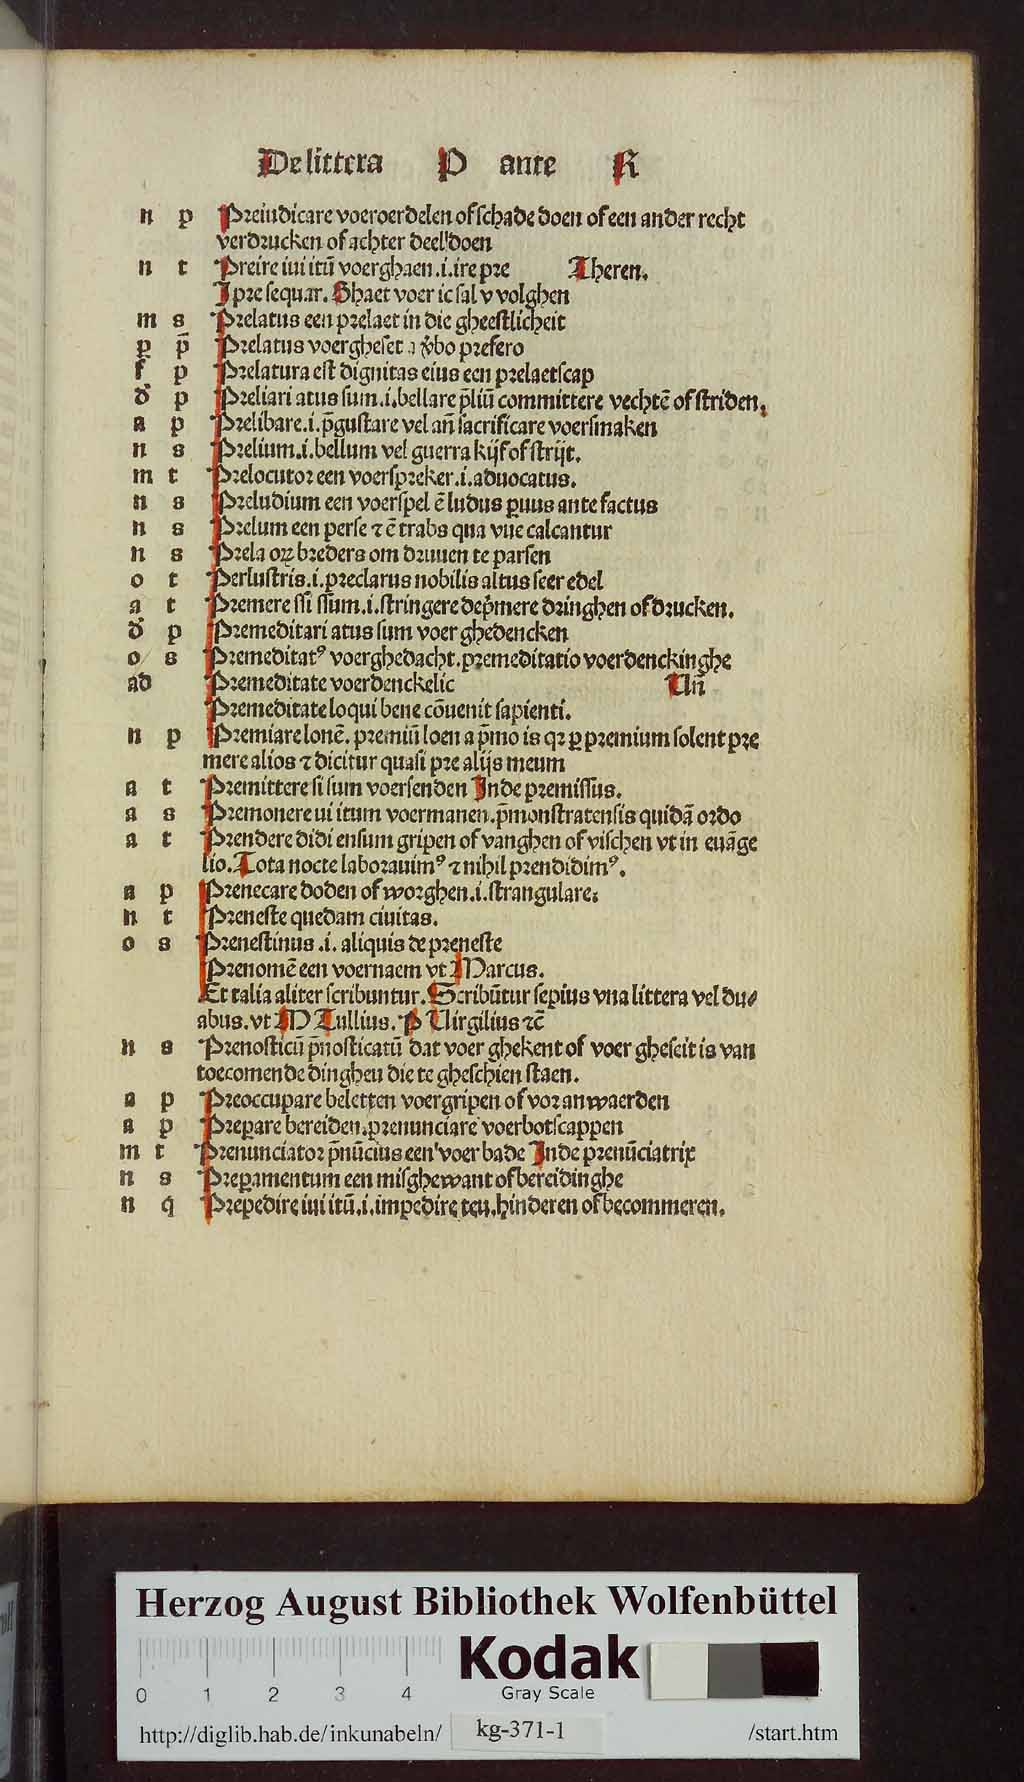 De littera P ante R
n p Preiudicare voeroerdelen of schade doen of een ander recht
verdrucken of achter deel doen
n t Preire iui itū voerghaen .i. ire pre Theren.
I pre sequar. Ghaet voer ic sal v volghen
m s Prelatus een prelaet in die gheestlicheit
ꝑ p̄ Prelatus voergheset a v̾bo prefero
f p Prelatura est dignitas eius een prelaetscap
d̾ p Preliari atus sum .i. bellare p̄liū committere vechtē of striden.
a p Prelibare .i. p̄gustare vel an̄ sacrificare voersmaken
n s Prelium .i. bellum vel guerra kijf of strijt.
m t Prelocutor een voerspreker .i. aduocatus.
n s Preludium een voerspel ē ludus ꝑuus ante factus
n s Prelum een perse ⁊ ē trabs qua vue calcantur
n s Prela oꝝ breders om druuen te parsen
o t Perlustris .i. preclarus nobilis altus seer edel
a t Premere ssi ssum .i. stringere dep̄mere dringhen of drucken.
d̾ p Premeditari atus sum voer ghedencken
o s Premeditatꝰ voerghedacht. premeditatio voerdenckinghe
ad Premeditate voerdenckelic Un̄
Premeditate loqui bene cōuenit sapienti.
n p Premiare lonē. premiū loen a p̄mo is qr ꝑ premium solent pre
mere alios ⁊ dicitur quasi pre alijs meum
a t Premittere si sum voersenden Inde premissus.
a s Premonere ui itum voermanen. p̄monstratensis quidā ordo
a t Prendere didi ensum gripen of vanghen of vischen vt in euāge
lio. Tota nocte laborauimꝰ ⁊ nihil prendidimꝰ.
a p Prenecare doden of worghen .i. strangulare.
n t Preneste quedam ciuitas.
o s Prenestinus .i. aliquis de preneste
Prenomē een voernaem vt Marcus.
Et talia aliter scribuntur. Scribūtur sepius vna littera vel du⸗
abus. vt M Tullius. P Uirgilius ⁊c̄
n s Prenosticū p̄nosticatū dat voer ghekent of voer gheseit is van
toecomende dinghen die te gheschien staen.
a p Preoccupare beletten voergripen of vor anwaerden
a p Preꝑare bereiden. prenunciare voerbotscappen
m t Prenunciator p̄nūcius een voer bade Inde prenūciatrix
n s Preꝑamentum een misghewant of bereidinghe
n q̄ Prepedire iui itū .i. impedire ten. hinderen of becommeren.
Herzog August Bibliothek Wolfenbüttel
Kodak
Gray Scale
0 1 2 3 4
http://diglib.hab.de/inkunabeln/ kg-371-1 /start.htm